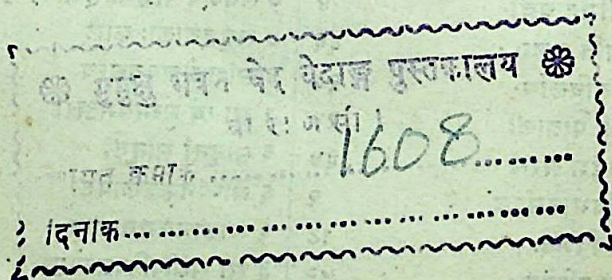 ❀ मुमुक्षु भवन वेद वेदाङ्ग पुस्तकालय ❀
वा रा ण सी ।
आगत क्रमांक ............ 1608 .........
दिनांक ....................................